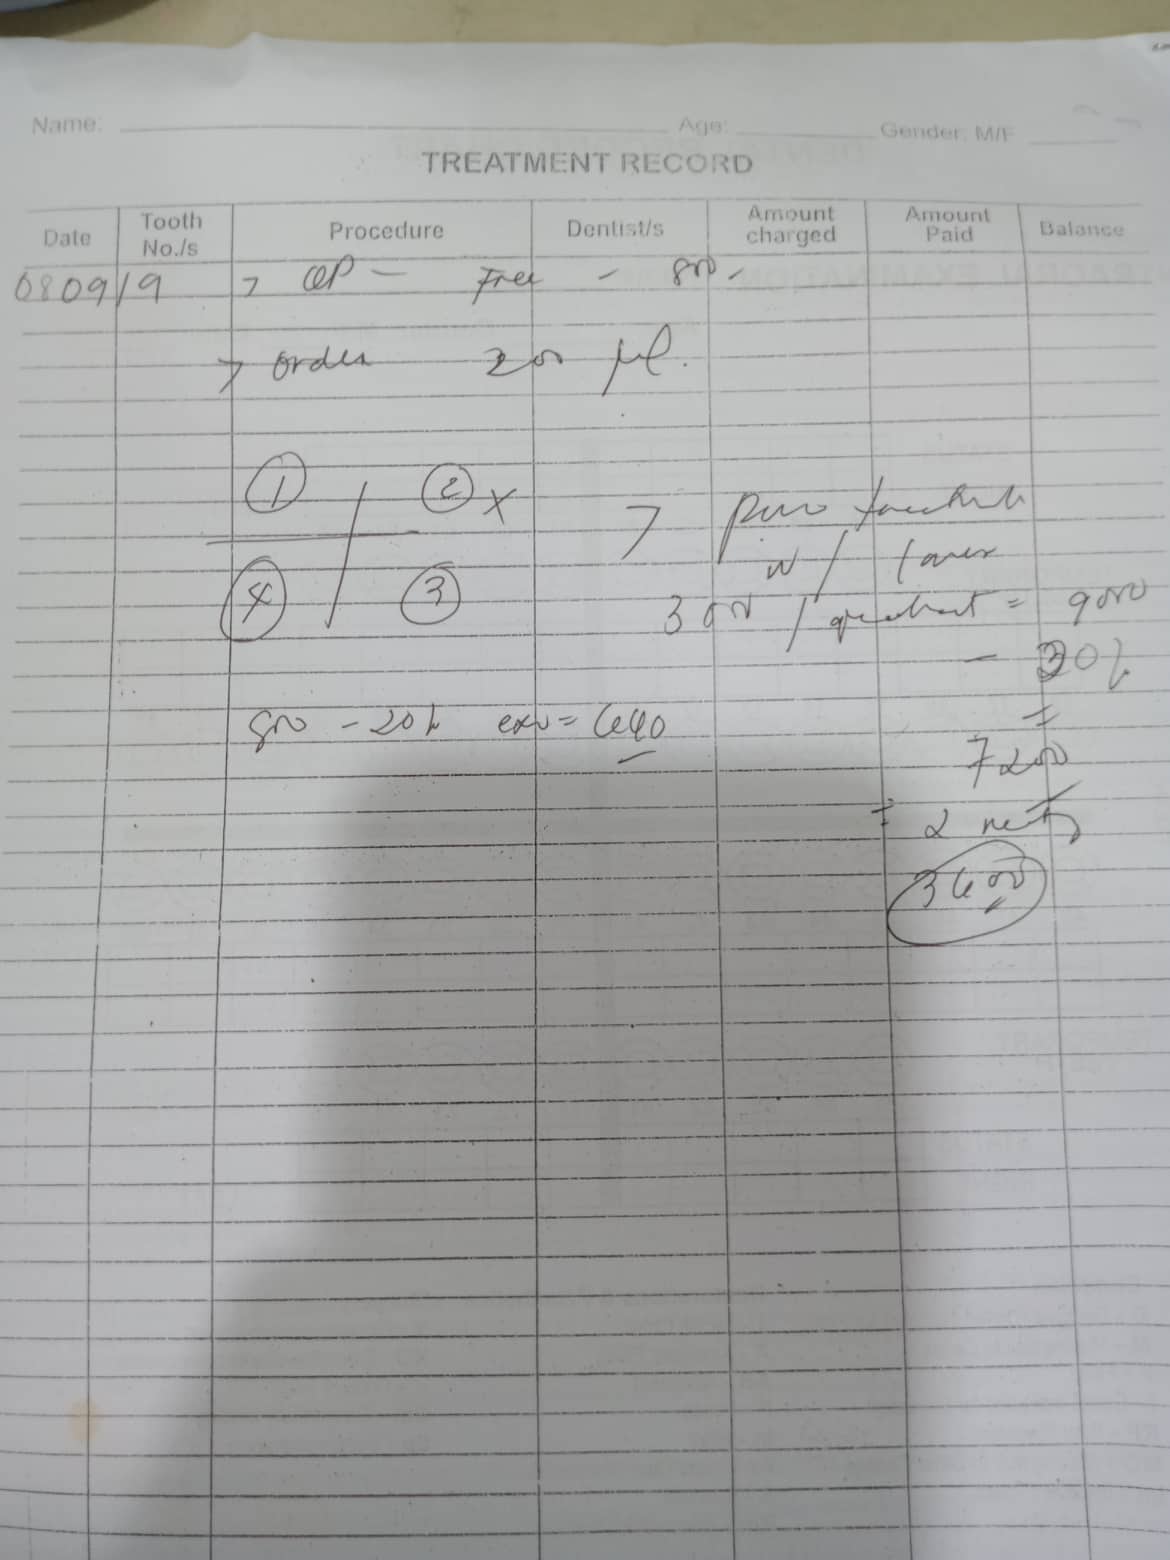 Name: Age: Gender: M/F
TREATMENT RECORD
Date Tooth No./s Procedure Dentist/s Amount charged Amount Paid Balance
080919 > OP - Free - 800 -
> order 200
1 2 x
4 3
>
w/ laser
3000 / quadrant = 9000
- 20%
=
7200
800 - 20% = 640
2
3600